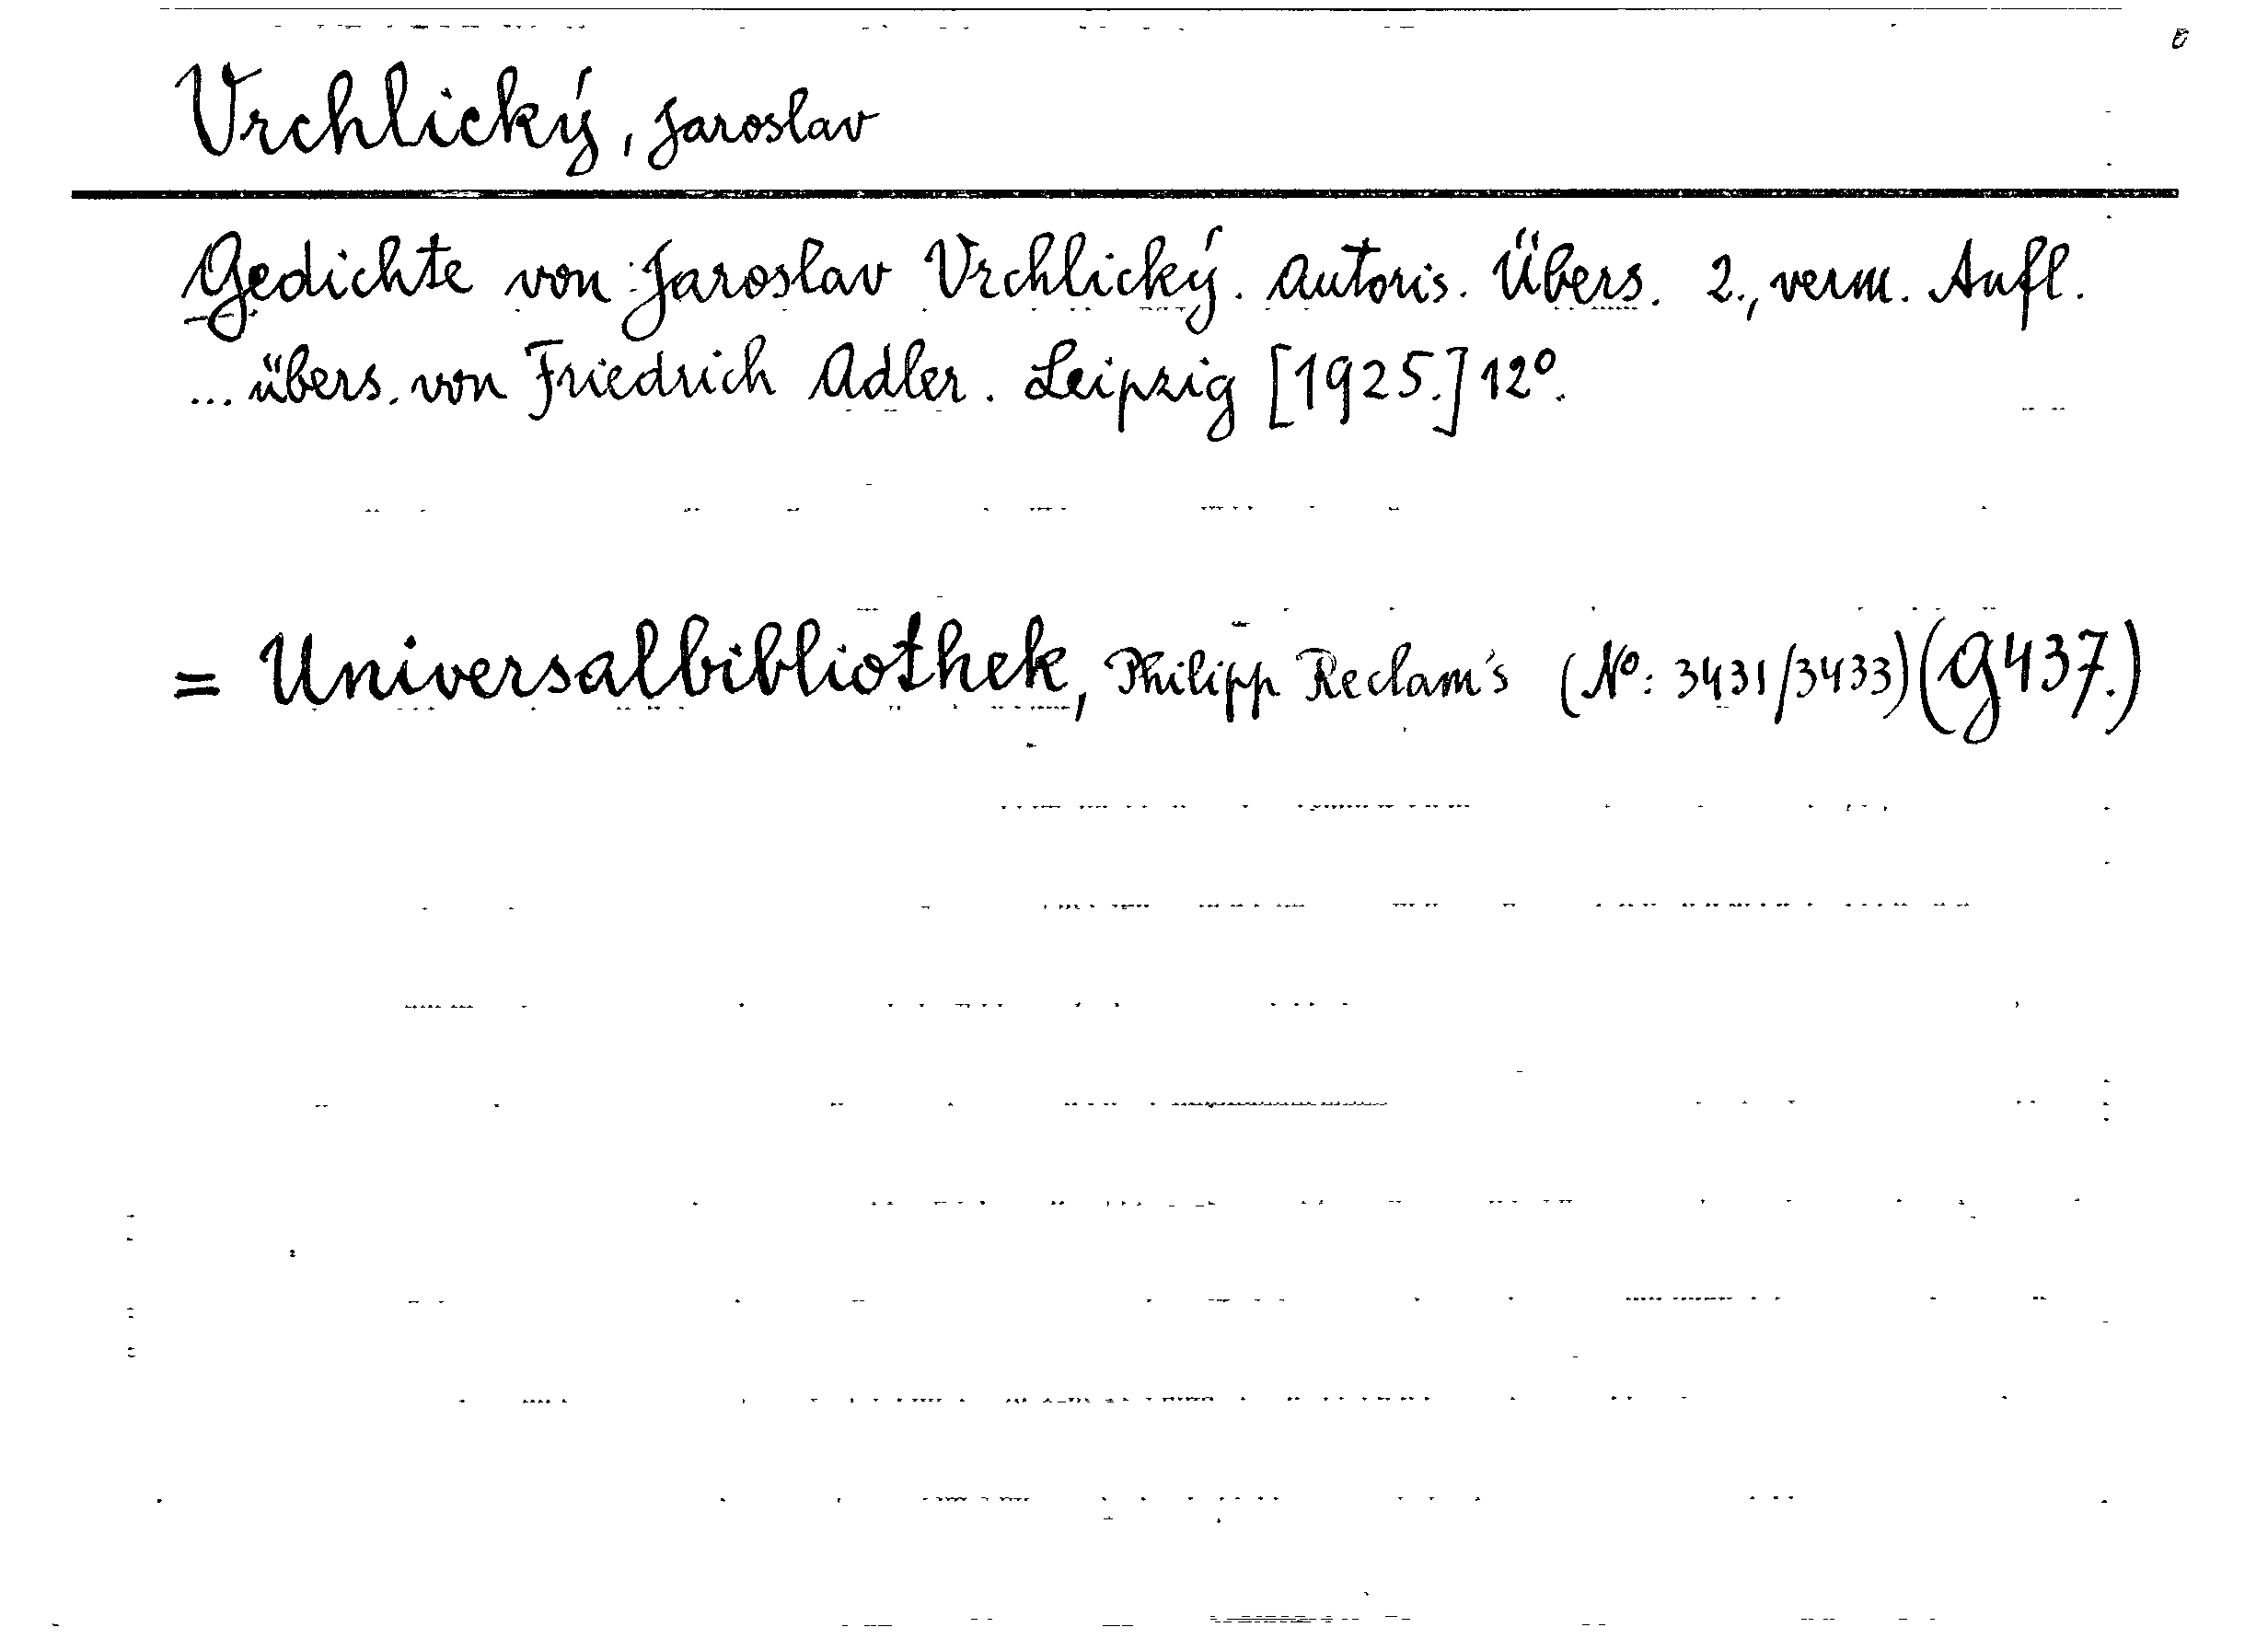 Vrchlický, Jaroslav
Gedichte von Jaroslav Vrchlický. Autoris. Übers. 2., verm. Aufl.
... übers. von Friedrich Adler. Leipzig [1925.] 12º.
= Universalbibliothek, Philipp Reclam's (Nº: 3431/3433) (G437.)